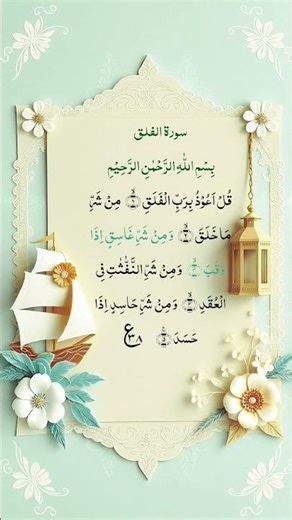 سورة الفلق
بِسْمِ اللّٰهِ الرَّحْمٰنِ الرَّحِيْمِ
قُلْ اَعُوْذُ بِرَبِّ الْفَلَقِ ۝١ مِنْ شَرِّ
مَا خَلَقَ ۝٢ وَمِنْ شَرِّ غَاسِقٍ اِذَا
وَقَبَ ۝٣ وَمِنْ شَرِّ النَّفّٰثٰتِ فِى
الْعُقَدِ ۝٤ وَمِنْ شَرِّ حَاسِدٍ اِذَا
حَسَدَ ۝٥